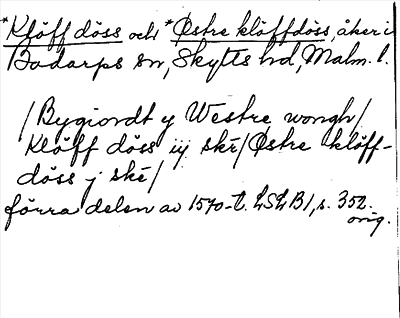 *Klöff döss och *Østre klöffdöss, åker i
Bodarps sn, Skytts hd, Malm. l.
/Bygiordt y Westre wongh/
Klöff döss iij skē/Østre klöff-
döss j skē/
förra delen av 1570-t. LSLB1, s. 352.
orig.